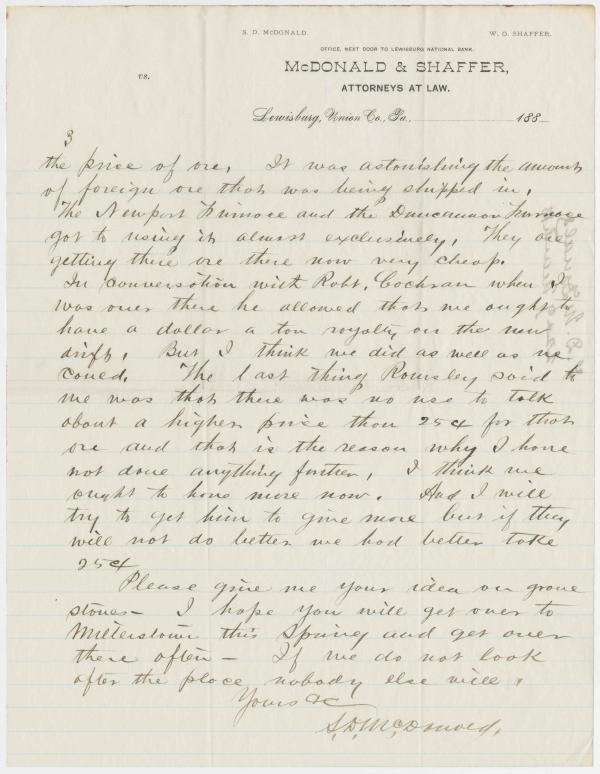 S. D. McDONALD.
W. O. SHAFFER.
OFFICE, NEXT DOOR TO LEWISBURG NATIONAL BANK.
vs.
McDONALD & SHAFFER,
ATTORNEYS AT LAW.
Lewisburg, Union Co., Pa. 188
3
the price of ore. It was astonishing the amount
of foreign ore that was being shipped in.
The Newport Furnace and the Duncannon Furnace
got to using it almost exclusively. They are
getting there ore there now very cheap.
In conversation with Robt. Cochran when I
was over there he allowed that we ought to
have a dollar a ton royalty on the new
drift. But I think we did as well as we
could. The last thing Rounsley said to
me was that there was no use to talk
about a higher price than 25¢ for that
ore and that is the reason why I have
not done anything further. I think we
ought to have more now. And I will
try to get him to give more but if they
will not do better we had better take
25¢
Please give me your idea on grave
stones - I hope you will get over to
Millerstown this Spring and get over
there often - If we do not look
after the place nobody else will.
Yours &c
S. D. McDonald.